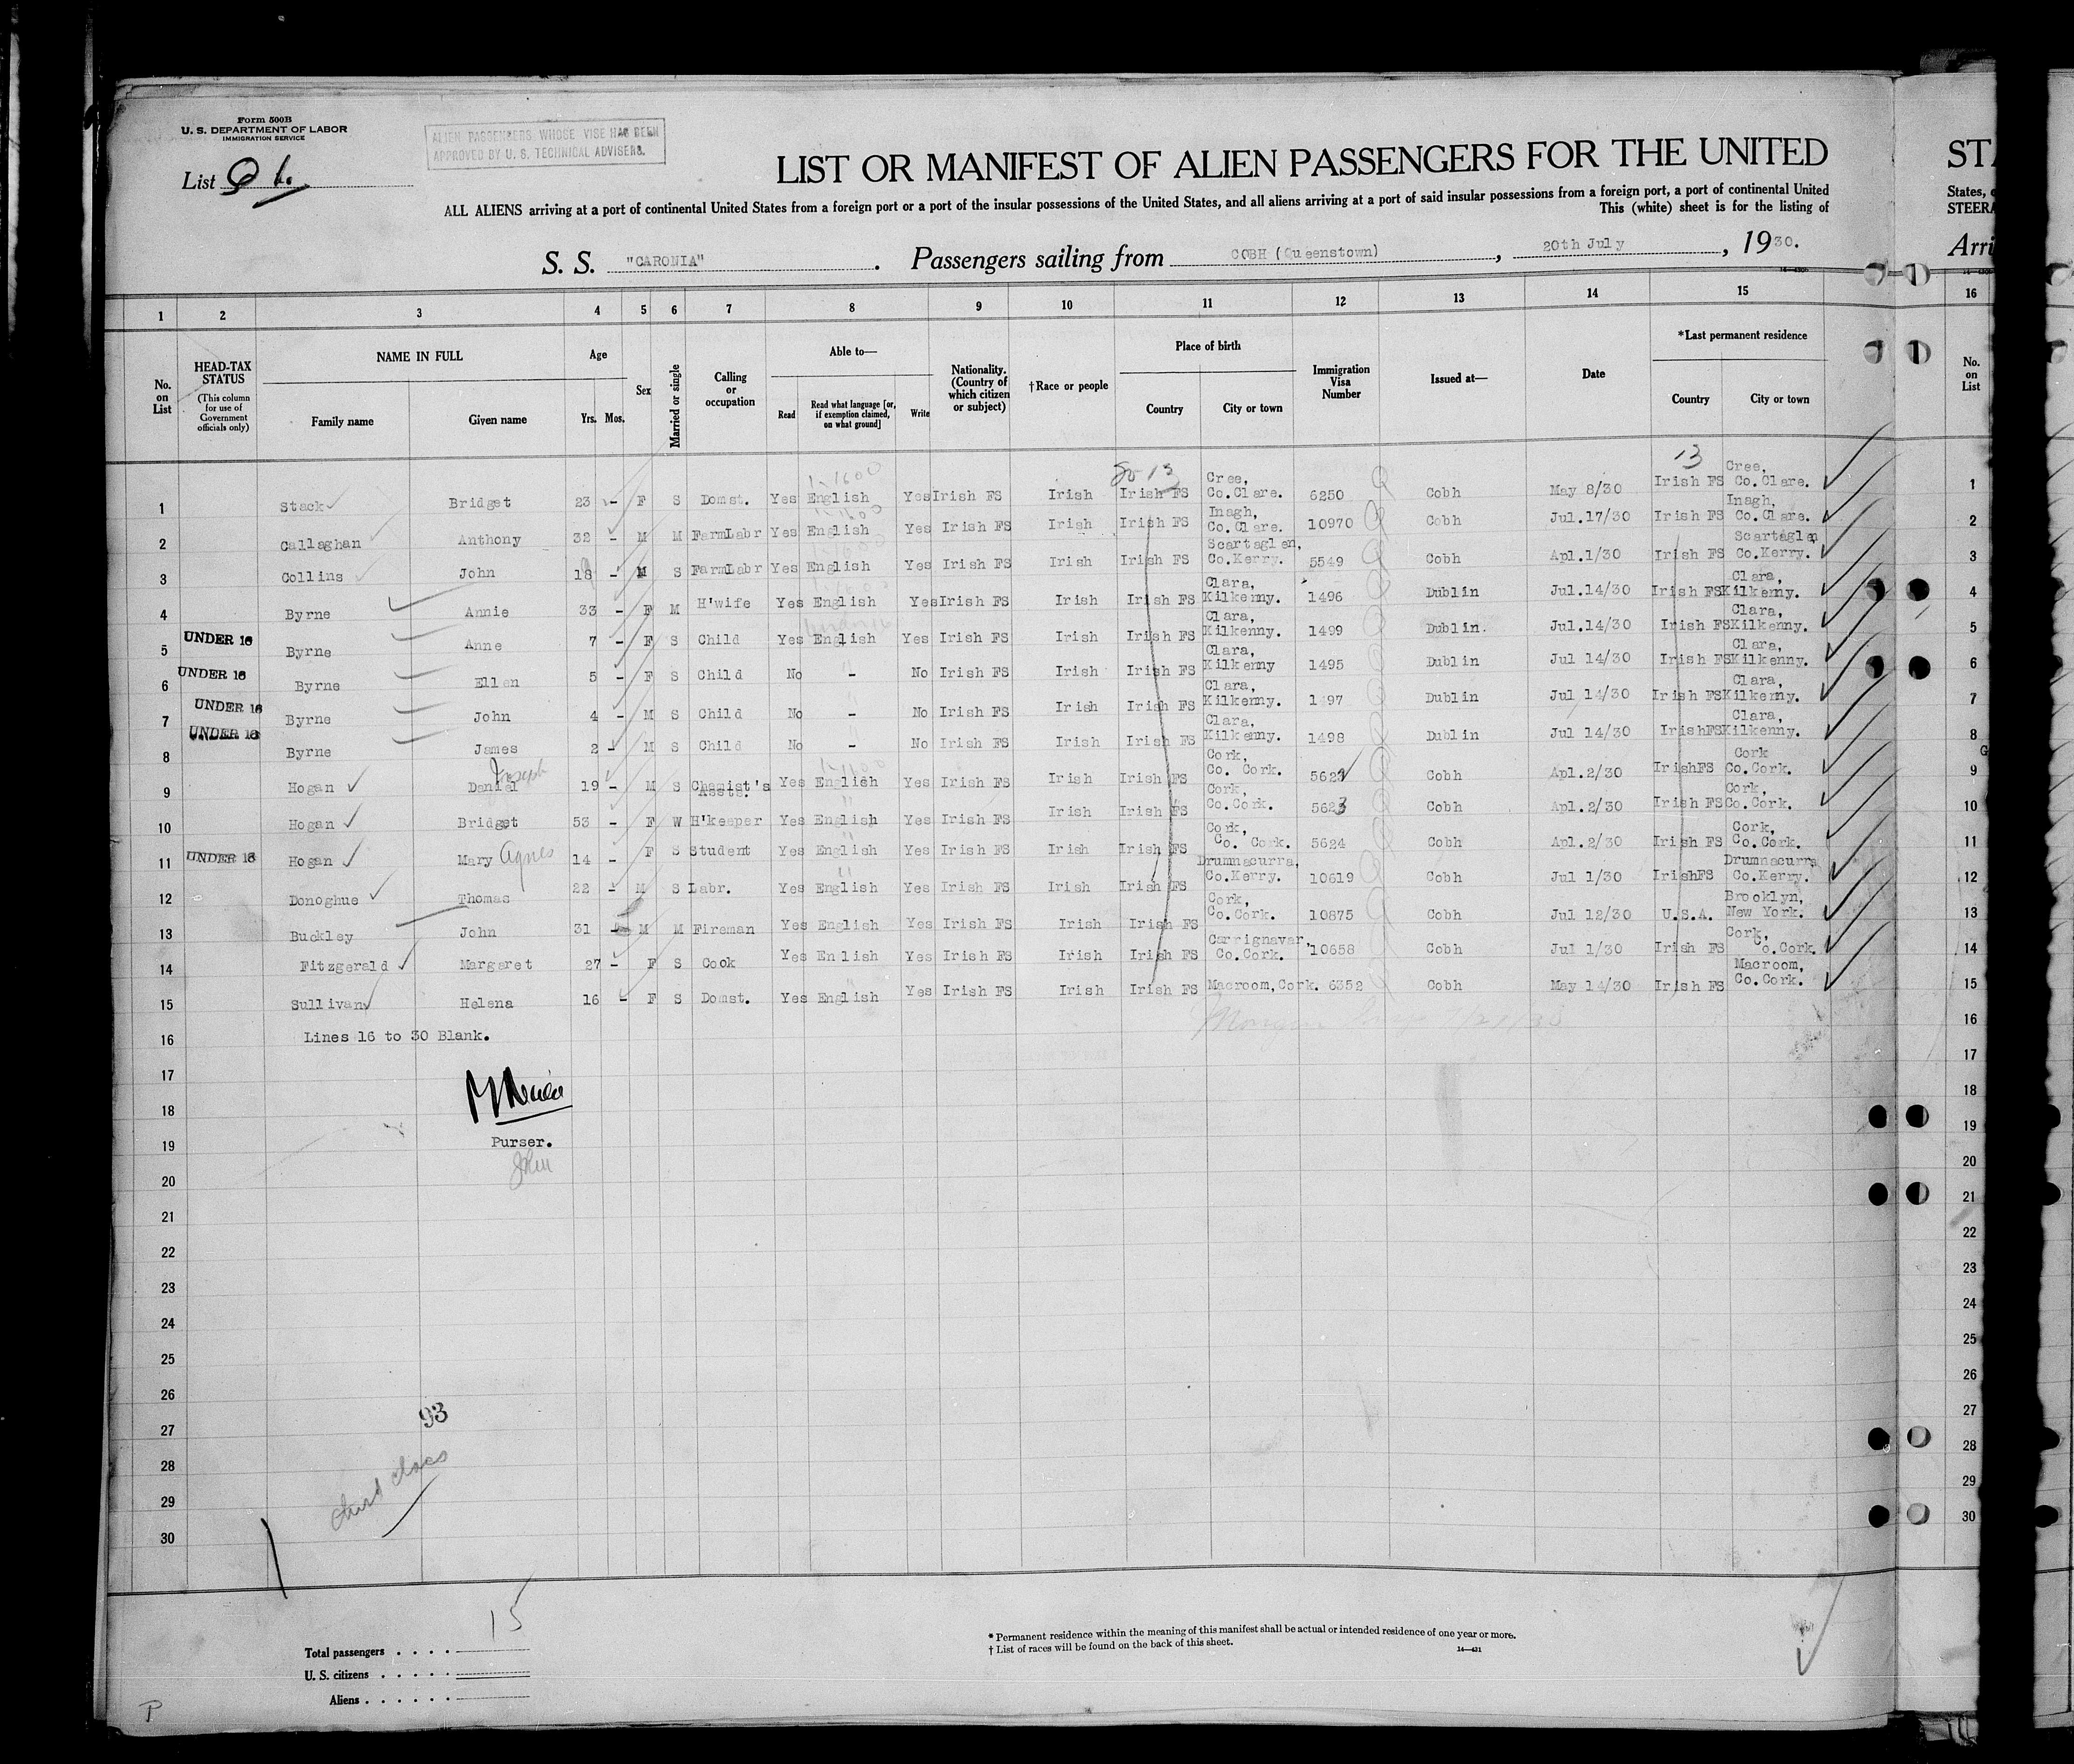 Form 500B
U. S. DEPARTMENT OF LABOR
IMMIGRATION SERVICE
List
ALIEN PASSENGERS WHOSE VISE HAS BEEN
APPROVED BY U. S. TECHNICAL ADVISERS.
LIST OR MANIFEST OF ALIEN PASSENGERS FOR THE UNITED
ALL ALIENS arriving at a port of continental United States from a foreign port or a port of the insular possessions of the United States, and all aliens arriving at a port of said insular possessions from a foreign port, a port of continental United
This (white) sheet is for the listing of
S. S. "CARONIA" . Passengers sailing from COBH (Queenstown) , 20th July , 1930.
1 2 3 4 5 6 7 8 9 10 11 12 13 14 15
No. on List
HEAD-TAX STATUS
(This column for use of Government officials only)
NAME IN FULL
Family name Given name
Age
Yrs. Mos.
Sex
Married or single
Calling or occupation
Able to—
Read
Read what language [or, if exemption claimed, on what ground]
Write
Nationality. (Country of which citizen or subject)
†Race or people
Place of birth
Country City or town
Immigration Visa Number
Issued at—
Date
*Last permanent residence
Country City or town
80 13 13
1 Stack Bridget 23 - F S Domst. Yes English Yes Irish FS Irish Irish FS Cree, Co.Clare. 6250 Cobh May 8/30 Irish FS Cree, Co.Clare.
2 Callaghan Anthony 32 - M M FarmLabr Yes English Yes Irish FS Irish Irish FS Inagh, Co.Clare. 10970 Cobh Jul.17/30 Irish FS Inagh, Co.Clare.
3 Collins John 18 - M S FarmLabr Yes English Yes Irish FS Irish Irish FS Scartaglen, Co.Kerry. 5549 Cobh Apl.1/30 Irish FS Scartaglen Co.Kerry.
4 Byrne Annie 33 - F M H'wife Yes English Yes Irish FS Irish Irish FS Clara, Kilkenny. 1496 Dublin Jul.14/30 Irish FS Clara, Kilkenny.
5 UNDER 16 Byrne Anne 7 - F S Child Yes English Yes Irish FS Irish Irish FS Clara, Kilkenny. 1499 Dublin. Jul.14/30 Irish FS Clara, Kilkenny.
6 UNDER 16 Byrne Ellen 5 - F S Child No - No Irish FS Irish Irish FS Clara, Kilkenny 1495 Dublin Jul 14/30 Irish FS Clara, Kilkenny.
7 UNDER 16 Byrne John 4 - M S Child No - No Irish FS Irish Irish FS Clara, Kilkenny. 1497 Dublin Jul 14/30 Irish FS Clara, Kilkenny.
8 UNDER 16 Byrne James 2 - M S Child No - No Irish FS Irish Irish FS Clara, Kilkenny. 1498 Dublin Jul 14/30 IrishFS Clara, Kilkenny.
9 Hogan Daniel Joseph 19 - M S Chemist's Assts. Yes English Yes Irish FS Irish Irish FS Cork, Co. Cork. Cobh Apl.2/30 IrishFS Cork Co.Cork.
10 Hogan Bridget 53 - F W H'keeper Yes English Yes Irish FS Irish Irish FS Cork, Co.Cork. 5623 Cobh Apl.2/30 Irish FS Cork, Co.Cork.
11 UNDER 16 Hogan Mary Agnes 14 - F S Student Yes English Yes Irish FS Irish Irish FS Cork, Co. Cork. 5624 Cobh Apl.2/30 Irish FS Cork, Co.Cork.
12 Donoghue Thomas 22 - M S Labr. Yes English Yes Irish FS Irish Irish FS Drumnacurra, Co.Kerry. 10619 Cobh Jul 1/30 IrishFS Drumnacurra Co.Kerry.
13 Buckley John 31 - M M Fireman Yes English Yes Irish FS Irish Irish FS Cork, Co.Cork. 10875 Cobh Jul 12/30 U.S.A. Brooklyn, New York.
14 Fitzgerald Margaret 27 - F S Cook Yes English Yes Irish FS Irish Irish FS Carrignavar, Co.Cork. 10658 Cobh Jul 1/30 Irish FS Cork, Co.Cork.
15 Sullivan Helena 16 - F S Domst. Yes English Yes Irish FS Irish Irish FS Macroom, Cork. 6352 Cobh May 14/30 Irish FS Macroom, Co.Cork.
16 Lines 16 to 30 Blank.
17
18
19 Purser.
20
21
22
23
24
25
26
27 93
28
29 third class
30
15
Total passengers
U. S. citizens
Aliens
* Permanent residence within the meaning of this manifest shall be actual or intended residence of one year or more.
† List of races will be found on the back of this sheet.
14—431
P
STA
States,
STEERA
Arri
16
No. on List
1
2
3
4
5
6
7
8
9
10
11
12
13
14
15
16
17
18
19
20
21
22
23
24
25
26
27
28
29
30